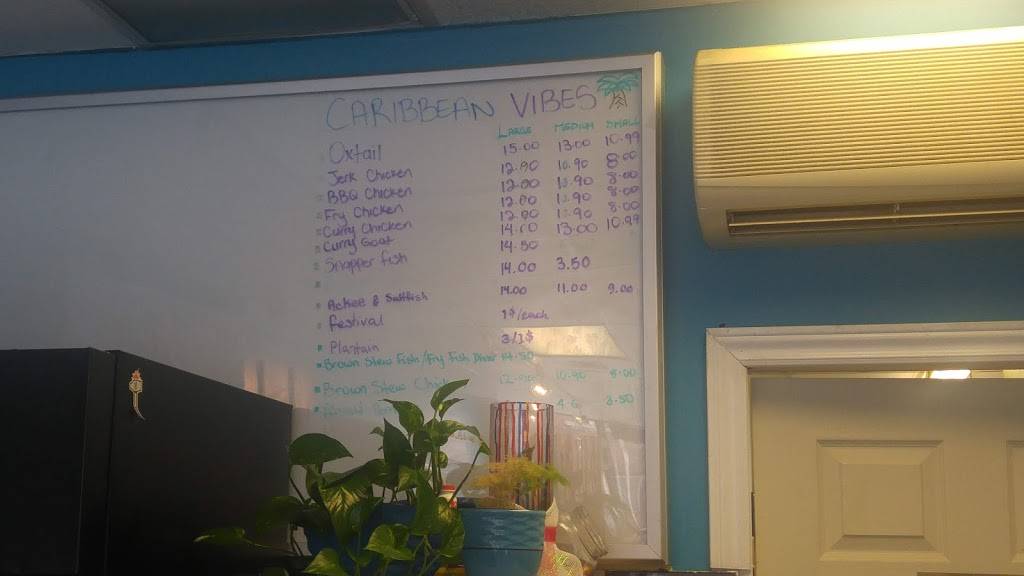 CARIBBEAN VIBES
LARGE MEDIUM SMALL
Oxtail 15.00 13.00 10.99
Jerk Chicken 12.90 10.90 8.00
BBQ Chicken 12.90 10.90 8.00
Fry Chicken 12.90 10.90 8.00
Curry Chicken 12.90 10.90 8.00
Curry Goat 13.00 10.99
Snapper fish 14.50
14.00 3.50
Ackee & Saltfish 14.00 11.00 9.00
Festival 1$/each
Plantain 3/1$
Brown Stew Fish/Fry Fish 14.50
Brown Stew 10.90 8.00
3.50